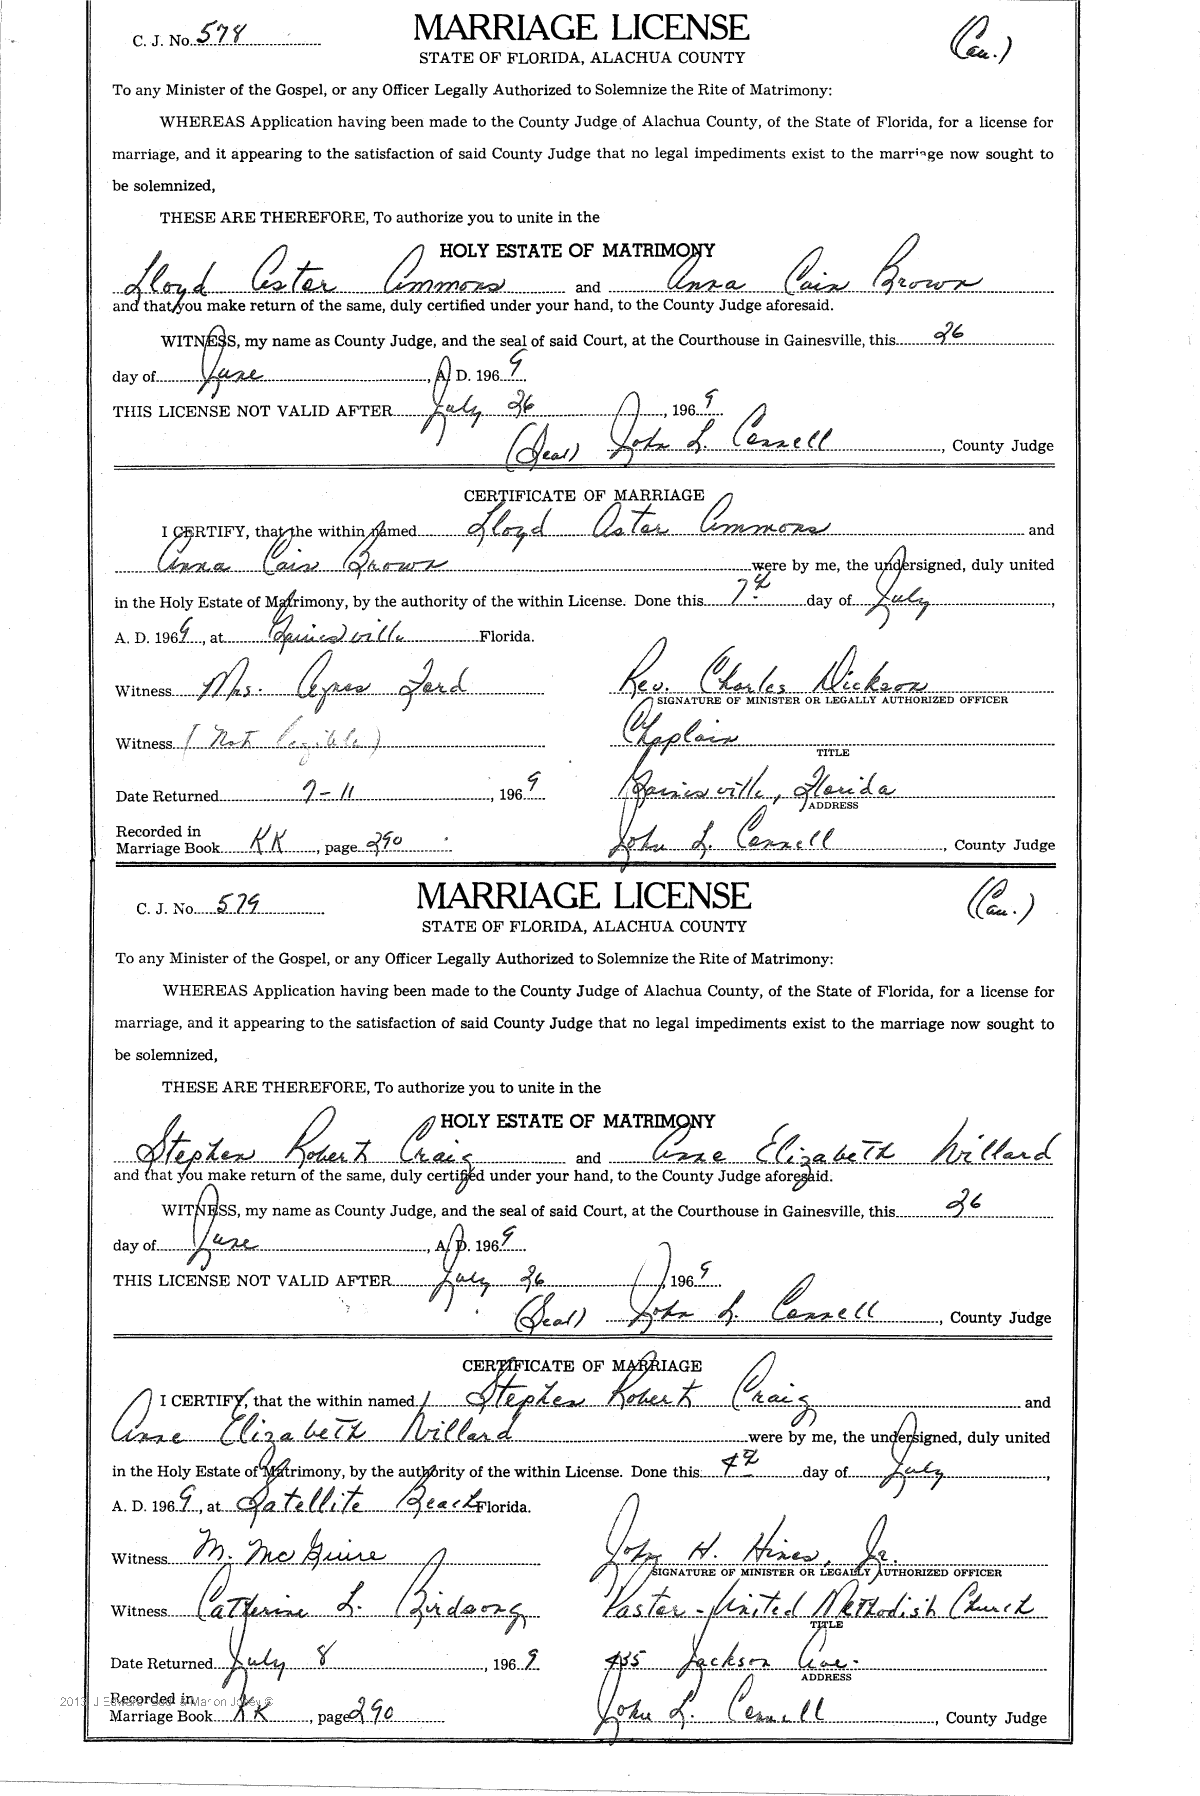 C. J. No. 578
MARRIAGE LICENSE
(Cau.)
STATE OF FLORIDA, ALACHUA COUNTY
To any Minister of the Gospel, or any Officer Legally Authorized to Solemnize the Rite of Matrimony:
WHEREAS Application having been made to the County Judge of Alachua County, of the State of Florida, for a license for
marriage, and it appearing to the satisfaction of said County Judge that no legal impediments exist to the marriage now sought to
be solemnized,
THESE ARE THEREFORE, To authorize you to unite in the
HOLY ESTATE OF MATRIMONY
Lloyd Aster Ammons and Anna Cain Brown
and that you make return of the same, duly certified under your hand, to the County Judge aforesaid.
WITNESS, my name as County Judge, and the seal of said Court, at the Courthouse in Gainesville, this 26
day of June, A. D. 1969
THIS LICENSE NOT VALID AFTER July 26, 1969
(Seal) John L. Connell, County Judge
CERTIFICATE OF MARRIAGE
I CERTIFY, that the within named Lloyd Aster Ammons and
Anna Cain Brown were by me, the undersigned, duly united
in the Holy Estate of Matrimony, by the authority of the within License. Done this 7th day of July,
A. D. 1969, at Gainesville Florida.
Witness Mrs. Agnes Ford Rev. Charles Dickson
SIGNATURE OF MINISTER OR LEGALLY AUTHORIZED OFFICER
Witness (Not legible) Chaplain
TITLE
Date Returned 7-11, 1969 Gainesville, Florida
ADDRESS
Recorded in
Marriage Book KK, page 290 John L. Connell, County Judge
C. J. No. 579
MARRIAGE LICENSE
(Cau.)
STATE OF FLORIDA, ALACHUA COUNTY
To any Minister of the Gospel, or any Officer Legally Authorized to Solemnize the Rite of Matrimony:
WHEREAS Application having been made to the County Judge of Alachua County, of the State of Florida, for a license for
marriage, and it appearing to the satisfaction of said County Judge that no legal impediments exist to the marriage now sought to
be solemnized,
THESE ARE THEREFORE, To authorize you to unite in the
HOLY ESTATE OF MATRIMONY
Stephen Robert Craig and Anne Elizabeth Willard
and that you make return of the same, duly certified under your hand, to the County Judge aforesaid.
WITNESS, my name as County Judge, and the seal of said Court, at the Courthouse in Gainesville, this 26
day of June, A. D. 1969
THIS LICENSE NOT VALID AFTER July 26, 1969
(Seal) John L. Connell, County Judge
CERTIFICATE OF MARRIAGE
I CERTIFY, that the within named Stephen Robert Craig and
Anne Elizabeth Willard were by me, the undersigned, duly united
in the Holy Estate of Matrimony, by the authority of the within License. Done this 4th day of July,
A. D. 1969, at Satellite Beach Florida.
Witness M. McGuire John H. Hines, Jr.
SIGNATURE OF MINISTER OR LEGALLY AUTHORIZED OFFICER
Witness Catherine L. Birdsong Pastor - United Methodist Church
TITLE
Date Returned July 8, 1969 435 Jackson Ave.
ADDRESS
Recorded in
Marriage Book KK, page 290 John L. Connell, County Judge